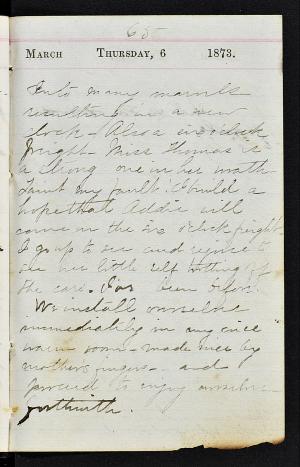 65
MARCH THURSDAY, 6 1873.
Into many marvels
resulting in a new
clock - Also a six o'clock
fright. Miss Thomas is
a strong one in her wrath
Taint my fault. I build a
hope that Addie will
come in the six o'clock freight
I go up to see and rejoice to
see her little self getting off
the cars. been before.
We install ourselves
immediately in my nice
warm room - made nice by
mothers fingers - and
proceed to enjoy ourselves
forthwith.